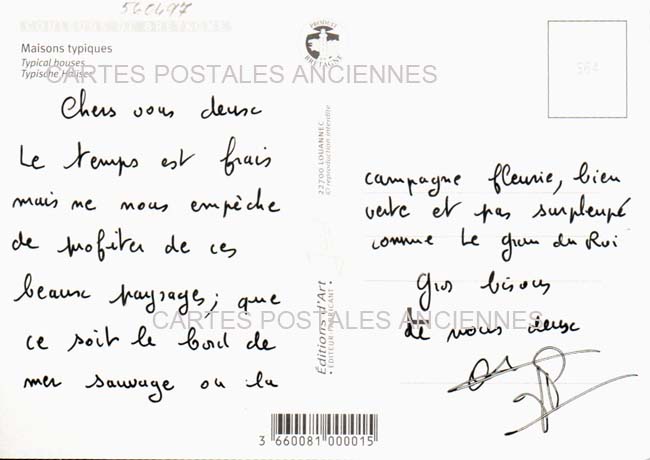 560497
COULEURS DE BRETAGNE
Maisons typiques
Typical houses
Typische Häuser
PRODUIT
BRETAGNE
564
CARTES POSTALES ANCIENNES
Chers vous deux
Le temps est frais
mais ne nous empêche
de profiter de ces
beaux paysages; que
ce soit le bord de
mer sauvage ou la
22700 LOUANNEC
© reproduction interdite
Editions d'Art
EDITEUR FABRICANT
campagne fleurie, bien
verte et pas surpleupé
comme le grau du Roi
Gros bisous
de nous deux
CARTES POSTALES ANCIENNES
3 660081 000015